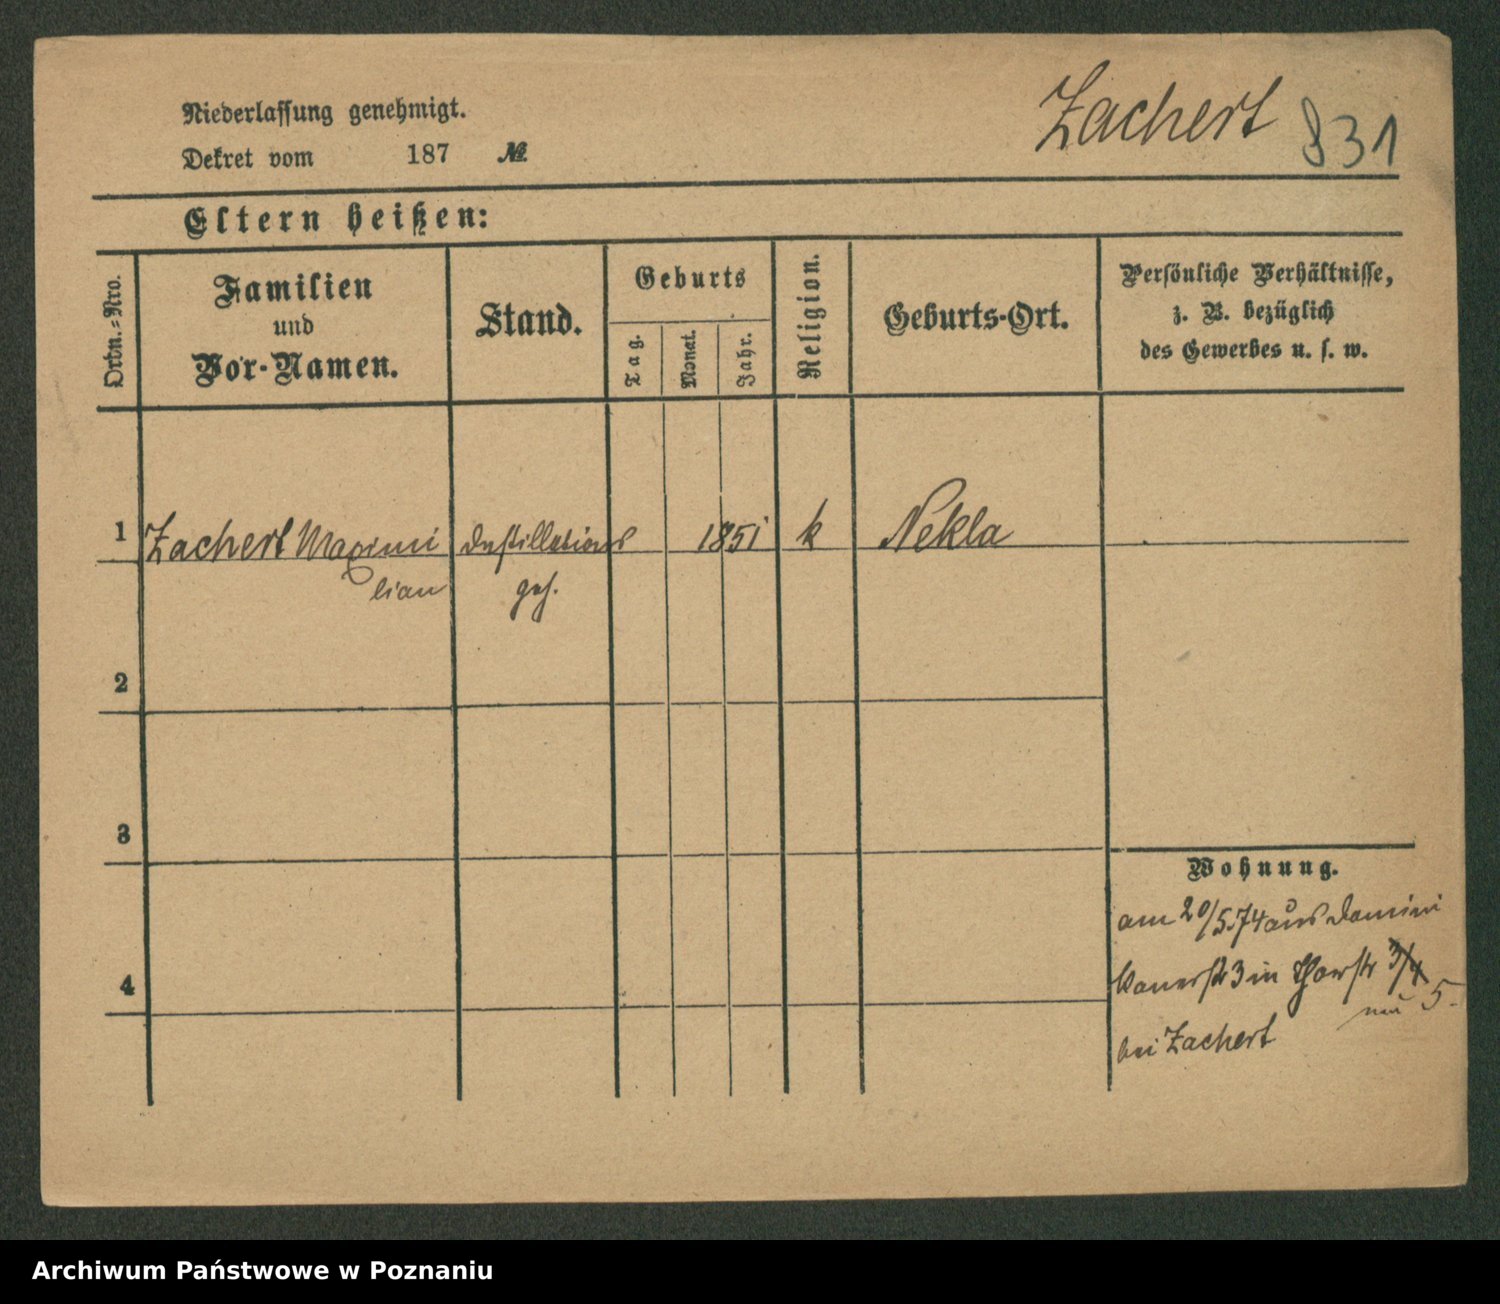 Niederlassung genehmigt.
Zachert 831
Dekret vom 187 №
Eltern heißen:
Ortn.=Nro.
Familien
und
Vor-Namen.
Stand.
Geburts
Tag.
Monat.
Jahr.
Religion.
Geburts-Ort.
Persönliche Verhältnisse,
z. B. bezüglich
des Gewerbes u. s. w.
1 Zachert Maximi Destillations 1851 k Nekla
lian geh.
2
3
4
Wohnung.
am 20/5.74 aus Domini
kanerstr 3 in Thorstr 3/4
neu 5.
bei Zachert
Archiwum Państwowe w Poznaniu